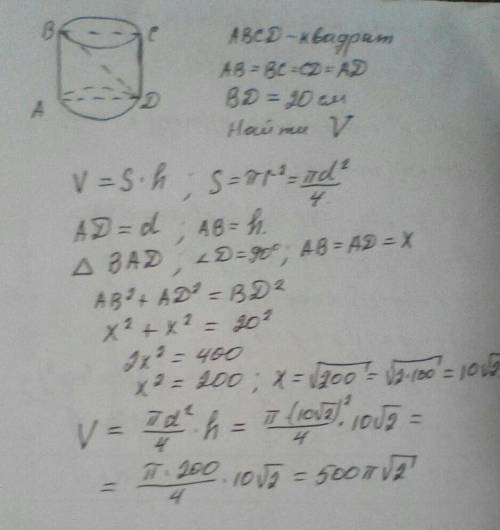 B C
A D
ABCD - квадрат
AB = BC = CD = AD
BD = 20 см
Найти V
V = S · h ; S = πr² = πd²/4
AD = d ; AB = h.
△ BAD ; ∠D = 90° ; AB = AD = x
AB² + AD² = BD²
x² + x² = 20²
2x² = 400
x² = 200 ; x = √200 = √2·100 = 10√2
V = πd²/4 · h = π(10√2)²/4 · 10√2 =
= π·200/4 · 10√2 = 500π√2